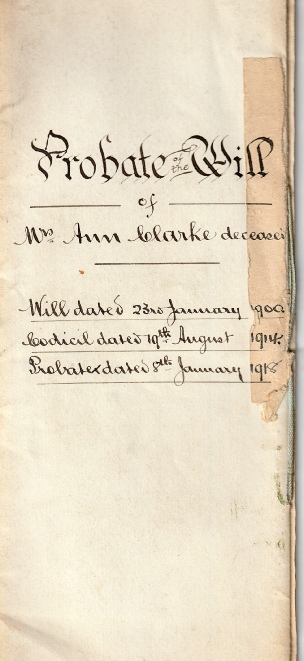 Probate of the Will
of
Mrs Ann Clarke deceased
Will dated 23rd January 1900
Codicil dated 19th August 1914
Probate dated 8th January 1918